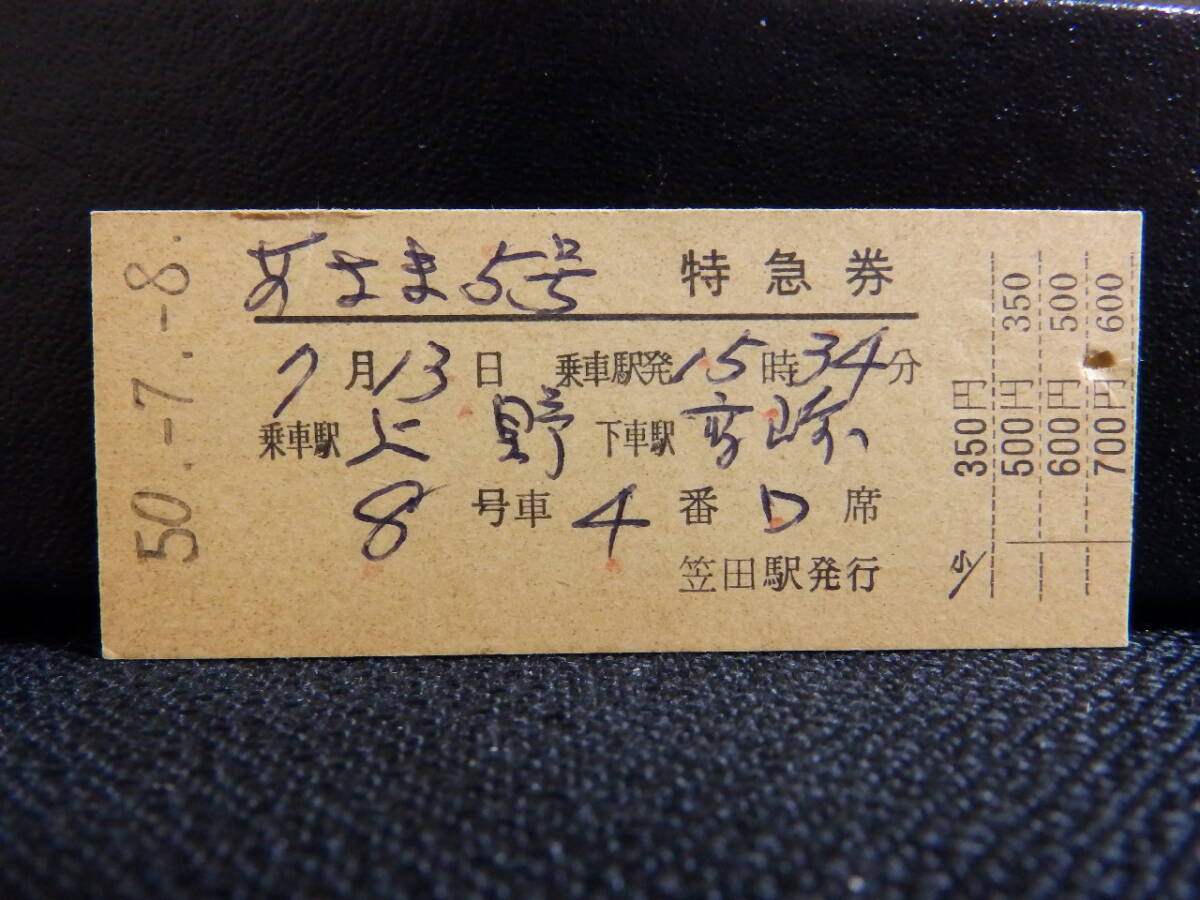 50.-7.-8.
あさま5号 特急券
7月13日 乗車駅発15時34分
乗車駅 上野 下車駅 高崎
8号車 4番 D席
笠田駅発行
350円
500円 350
600円 500
700円 600
小